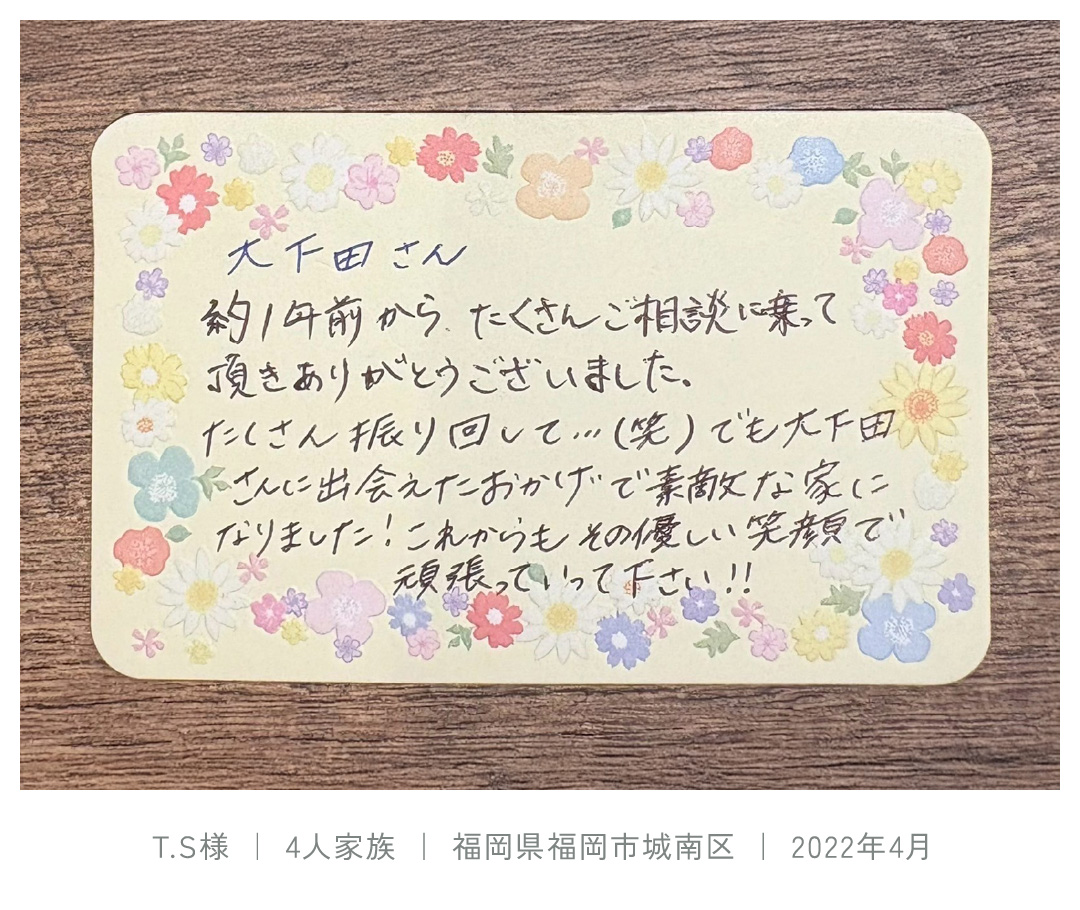 大下田さん
約1年前から、たくさんご相談に乗って
頂きありがとうございました。
たくさん振り回して…(笑)でも大下田
さんに出会えたおかげで素敵な家に
なりました!これからもその優しい笑顔で
頑張っていって下さい!!
T.S様 | 4人家族 | 福岡県福岡市城南区 | 2022年4月